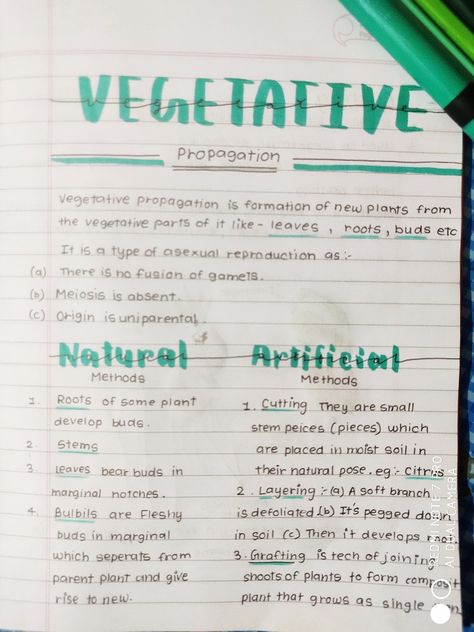 VEGETATIVE
vegetative
Propagation
vegetative propagation is formation of new plants from
the vegetative parts of it like - leaves , roots , buds etc
It is a type of asexual reproduction as :-
(a) There is no fusion of gamets.
(b) Meiosis is absent.
(c) Origin is uniparental.
Natural
Methods
1. Roots of some plant
develop buds.
2. Stems
3. leaves bear buds in
marginal notches.
4. Bulbils are Fleshy
buds in marginal
which seperats from
parent plant and give
rise to new.
Artificial
Methods
1. Cutting They are small
stem peices (pieces) which
are placed in moist soil in
their natural pose. eg :- Citrus
2. Layering :- (a) A soft branch
is defoliated (b) It's pegged down
in soil (c) Then it develops root.
3. Grafting is tech of joining
shoots of plants to form composit
plant that grows as single
REDMI NOTE 7 PRO
AI DUAL CAMERA